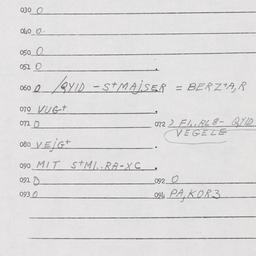 030 0
040 0
050 0
051 0
060 0 /QYID - S+MAJSER = BERZ+A,R
070 VUG+
071 0 072 > FL..RL8- QYID
VEGELE
080 VEJG+
090 MIT S+MI..RA-XC
091 D 092 0
093 0 094 PA,KDR3